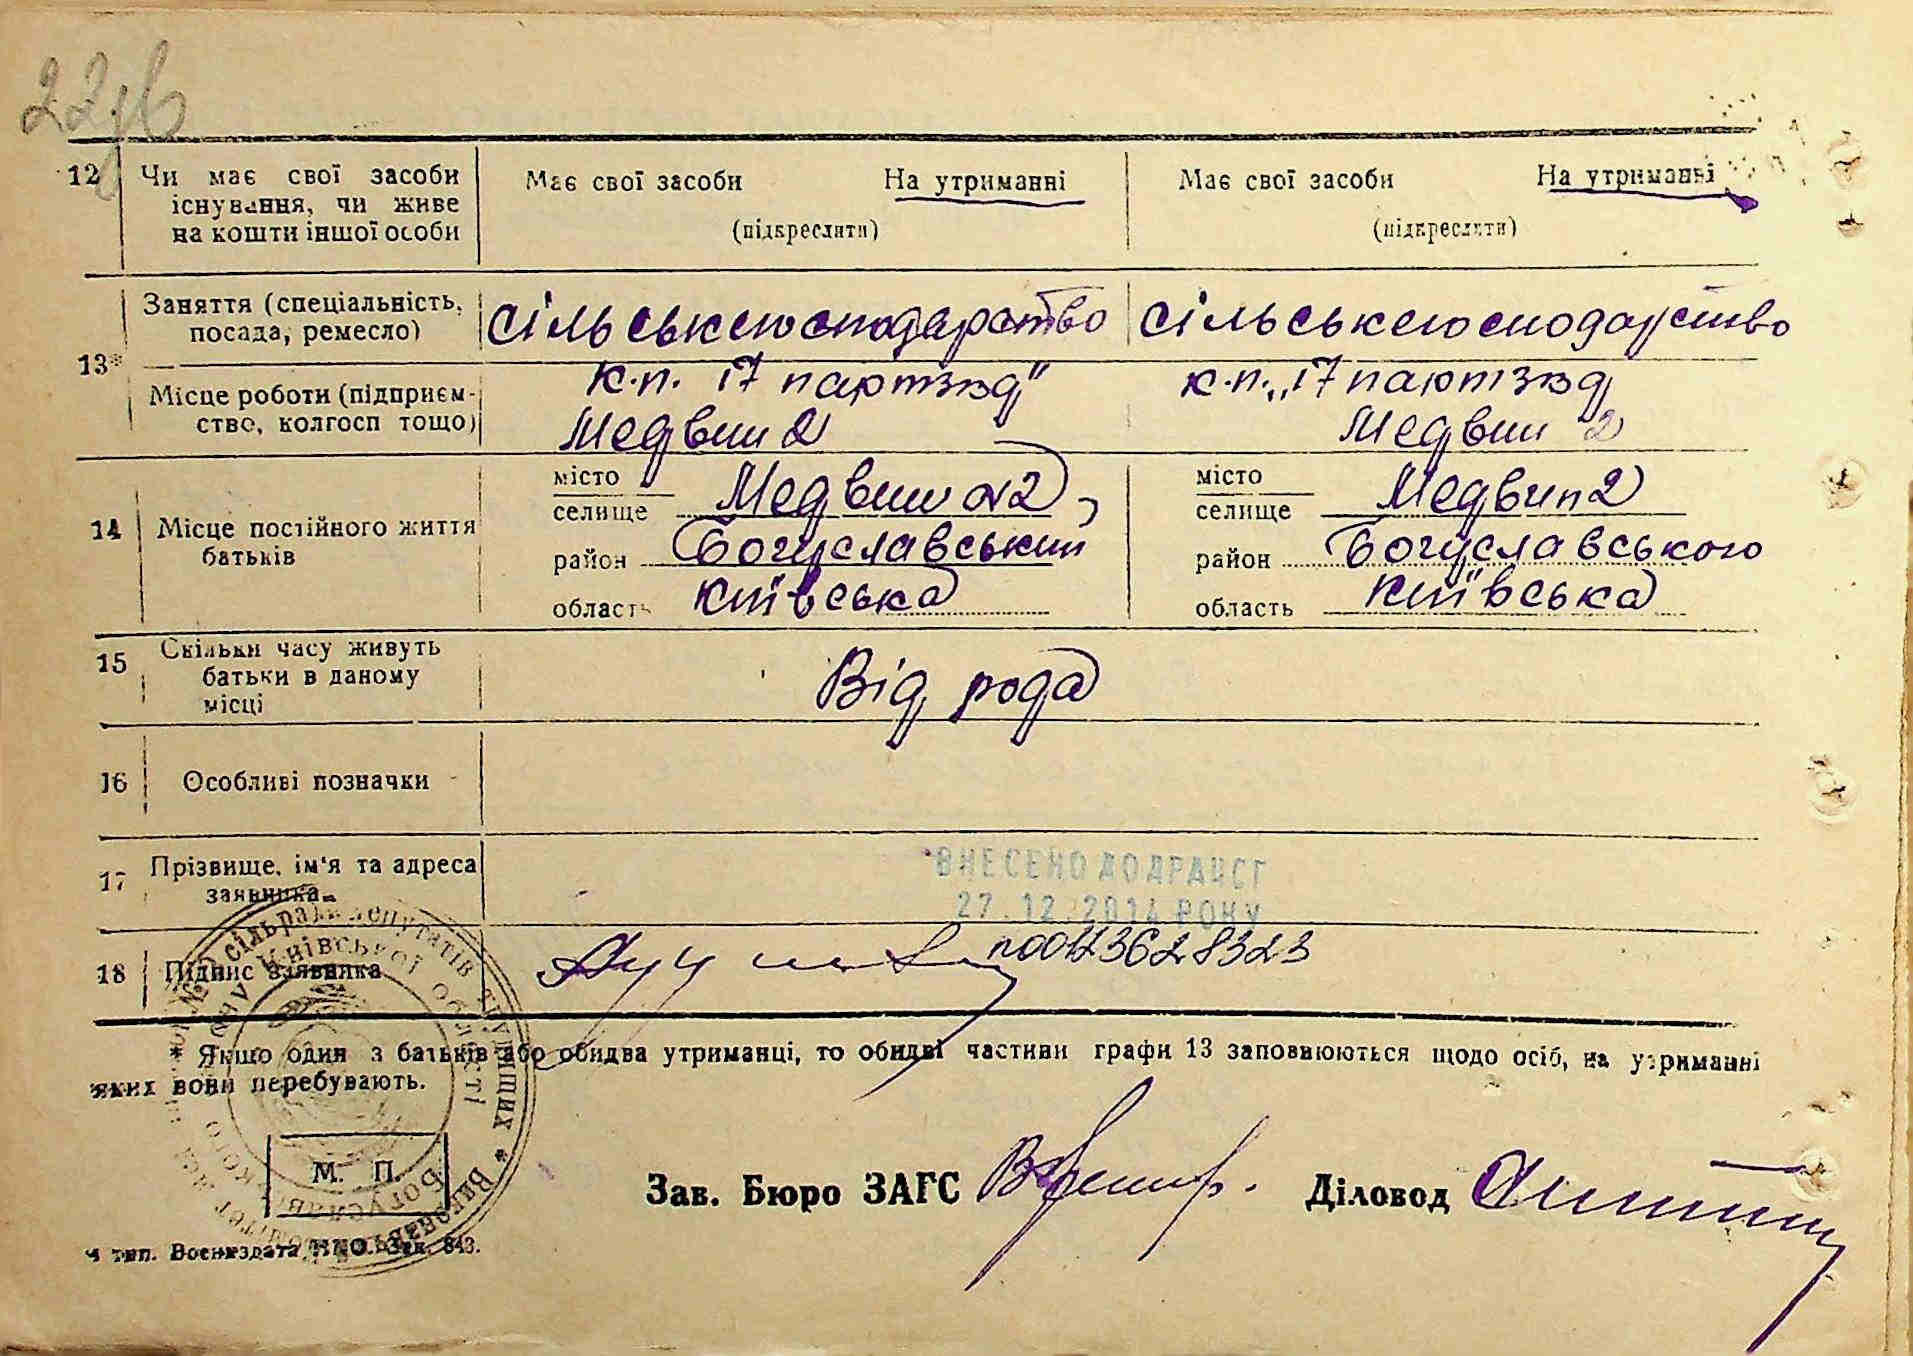 12 Чи має свої засоби існування, чи живе на кошти іншої особи
Має свої засоби На утриманні
(підкреслити)
Має свої засоби На утриманні
(підкреслити)
13* Заняття (спеціальність, посада, ремесло)
сільськегоснодарство
сільськегоснодарство
Місце роботи (підприємство, колгосп тощо)
к.п. 17 партзвд"
Медвин 2
к.п. „17 партзвд
Медвин 2
14 Місце постійного життя батьків
місто
селище Медвин №2
район Богуславський
область Київська
місто
селище Медвин 2
район Богуславського
область Київська
15 Скільки часу живуть батьки в даному місці
Від рода
16 Особливі позначки
17 Прізвище, ім'я та адреса заявника
ВНЕСЕНО ДО ДРАЦСГ
27.12.2014 РОКУ
18 Підпис заявника
00123628323
* Якщо один з батьків або обидва утриманці, то обидві частини графи 13 заповнюються щодо осіб, на утриманні
яких вони перебувають.
М. П.
Зав. Бюро ЗАГС
Діловод
тип. Воениздата НКО. Зак. 843.